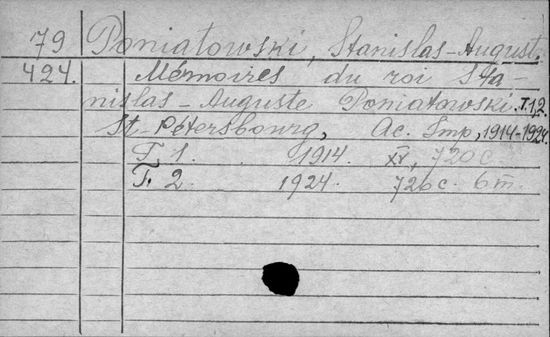 79 Poniatowski, Stanislas-August.
424. Mémoires du roi Sta-
nislas-Auguste Poniatowski. T.1,2.
St-Pétersbourg, Ac. Imp, 1914-1924.
T. 1. 1914. XV, 720 c.
T. 2 1924. 726 c. 6 m.